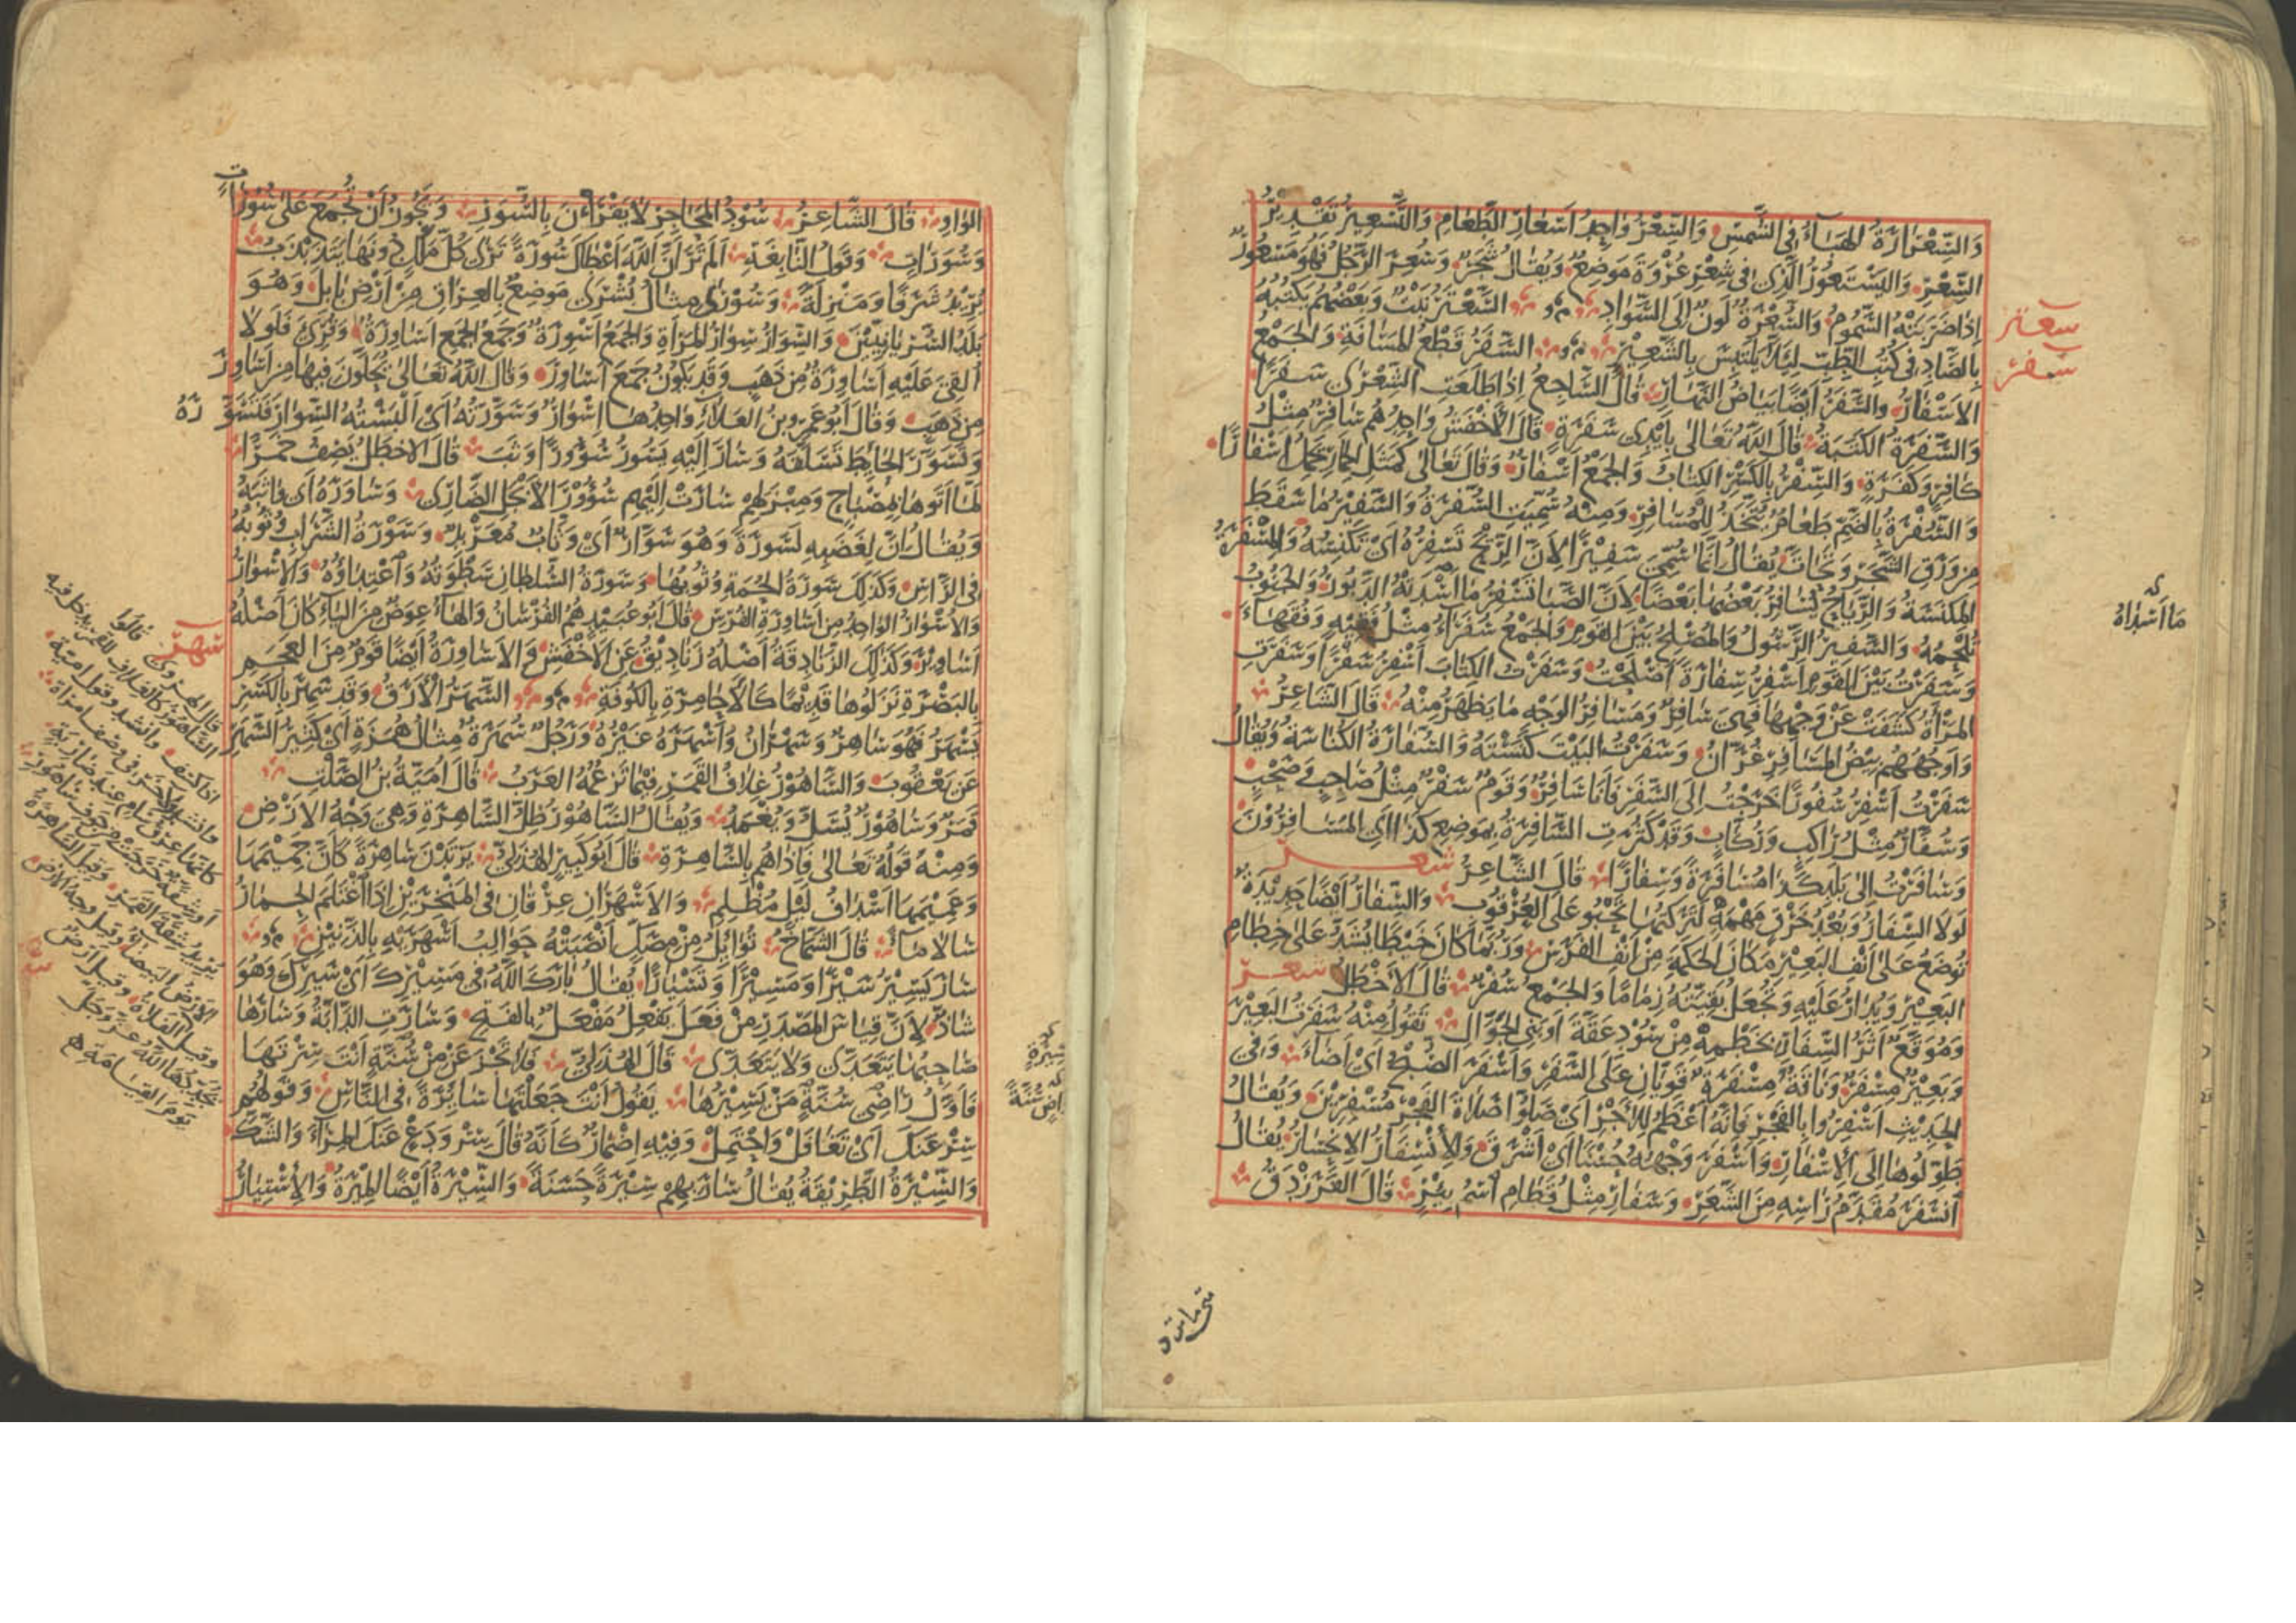 وَالسِّعْرَارَةُ الهَبَاءُ فِي الشَّمْسِ وَالسِّعْرُ وَاحِدُ أَسْعَارِ الطَّعَامِ وَالتَّسْعِيرُ تَقْدِيرُ
السِّعْرِ وَاليَسْتَعُورُ الَّذِي فِي شِعْرِ عُرْوَةَ مَوْضِعٌ وَيُقَالُ شَجَرٌ وَسُعِرَ الرَّجُلُ فَهُوَ مَسْعُورٌ
إِذَا ضَرَبَتْهُ السَّمُومُ وَالسُّعْرَةُ لَوْنٌ إِلَى السَّوَادِ السَّعْتَرُ نَبْتٌ وَبَعْضُهُمْ يَكْتُبُهُ
بِالصَّادِ فِي كُتُبِ الطِّبِّ لِئَلَّا يَلْتَبِسَ بِالشَّعِيرِ السَّفَرُ قَطْعُ المَسَافَةِ وَالجَمْعُ
الأَسْفَارُ وَالسَّفَرُ أَيْضًا بَيَاضُ النَّهَارِ قَالَ السَّاجِعُ إِذَا طَلَعَتِ الشِّعْرَى سَفَرًا
وَالسَّفَرَةُ الكَتَبَةُ قَالَ اللهُ تَعَالَى بِأَيْدِي سَفَرَةٍ قَالَ الأَخْفَشُ وَاحِدُهُمْ سَافِرٌ مِثْلُ
كَافِرٍ وَكَفَرَةٍ وَالسِّفْرُ بِالكَسْرِ الكِتَابُ وَالجَمْعُ أَسْفَارٌ وَقَالَ تَعَالَى كَمَثَلِ الحِمَارِ يَحْمِلُ أَسْفَارًا
وَالسُّفْرَةُ بِالضَّمِّ طَعَامٌ يُتَّخَذُ لِلْمُسَافِرِ وَمِنْهُ سُمِّيَتِ السُّفْرَةُ وَالسَّفِيرُ مَا سَقَطَ
مِنْ وَرَقِ الشَّجَرِ وَتَحَاتَّ يُقَالُ إِنَّمَا سُمِّيَ سَفِيرًا لِأَنَّ الرِّيحَ تَسْفِرُهُ أَيْ تَكْنِسُهُ وَالمِسْفَرَةُ
المِكْنَسَةُ وَالرِّيَاحُ تُسَافِرُ بَعْضُهَا بَعْضًا لِأَنَّ الصَّبَا تَسْفِرُ مَا أَسْدَتْهُ الدَّبُورُ وَالجَنُوبُ
تُلْحِمُهُ وَالسَّفِيرُ الرَّسُولُ وَالمُصْلِحُ بَيْنَ القَوْمِ وَالجَمْعُ سُفَرَاءُ مِثْلُ فَقِيهٍ وَفُقَهَاءَ
وَسَفَرْتُ بَيْنَ القَوْمِ أَسْفِرُ سِفَارَةً أَصْلَحْتُ وَسَفَرْتُ الكِتَابَ أَسْفِرُ سَفْرًا وَسَفَرَتِ
المَرْأَةُ كَشَفَتْ عَنْ وَجْهِهَا فَهِيَ سَافِرٌ وَمَسَافِرُ الوَجْهِ مَا يَظْهَرُ مِنْهُ قَالَ الشَّاعِرُ
وَأَوْجُهُهُمْ بِيضُ المَسَافِرِ غُرَّانُ وَسَفَرْتُ البَيْتَ كَنَسْتُهُ وَالسُّفَارَةُ الكُنَاسَةُ وَيُقَالُ
سَفَرْتُ أَسْفِرُ سُفُورًا خَرَجْتُ إِلَى السَّفَرِ فَأَنَا سَافِرٌ وَقَوْمٌ سَفْرٌ مِثْلُ صَاحِبٍ وَصَحْبٍ
وَسُفَّارٌ مِثْلُ رَاكِبٍ وَرُكَّابٍ وَقَدْ كَثُرَتِ السَّافِرَةُ بِمَوْضِعِ كَذَا أَيِ المُسَافِرُونَ
وَسَافَرْتُ إِلَى بَلَدِ كَذَا مُسَافَرَةً وَسِفَارًا قَالَ الشَّاعِرُ شعر
لَوْلَا السِّفَارُ وَبُعْدُ خَرْقٍ مَهْمَهٍ لَتَرَكْتُهَا تَحْبُو عَلَى العُرْقُوبِ وَالسِّفَارُ أَيْضًا حَدِيدَةٌ
تُوضَعُ عَلَى أَنْفِ البَعِيرِ مَكَانَ الحَكَمَةِ مِنْ أَنْفِ الفَرَسِ وَرُبَّمَا كَانَ خَيْطًا يُشَدُّ عَلَى خِطَامِ
البَعِيرِ وَيُدَارُ عَلَيْهِ وَيُجْعَلُ بَقِيَّتُهُ زِمَامًا وَالجَمْعُ سُفُرٌ قَالَ الأَخْطَلُ شعر
وَمُوَقَّعٌ أَثَرُ السِّفَارِ بِخَطْمِهِ مِنْ سُودِ عَقَّةَ أَوْ بَنِي الجَوَّالِ تَقُولُ مِنْهُ سَفَرْتُ البَعِيرَ
وَبَعِيرٌ مِسْفَرٌ وَنَاقَةٌ مِسْفَرَةٌ قَوِيَّانِ عَلَى السَّفَرِ وَأَسْفَرَ الصُّبْحُ أَيْ أَضَاءَ وَفِي
الحَدِيثِ أَسْفِرُوا بِالفَجْرِ فَإِنَّهُ أَعْظَمُ لِلْأَجْرِ أَيْ صَلُّوا صَلَاةَ الفَجْرِ مُسْفِرِينَ وَيُقَالُ
طَوِّلُوهَا إِلَى الإِسْفَارِ وَأَسْفَرَ وَجْهُهُ حُسْنًا أَيْ أَشْرَقَ وَالإِنْسِفَارُ الإِنْحِسَارُ يُقَالُ
أَنْسَفَرَ مُقَدَّمُ رَأْسِهِ مِنَ الشَّعَرِ وَسَفَارِ مِثْلُ قَطَامِ اسْمُ بِئْرٍ قَالَ الفَرَزْدَقُ
سعتر
سفر
مَا أَسْدَاهُ
الوَاوِ قَالَ الشَّاعِرُ سُودُ المَحَاجِرِ لَا يَقْرَأْنَ بِالسُّوَرِ وَيَجُوزُ أَنْ تُجْمَعَ عَلَى سُوْرَاتٍ
وَسُوَرَاتٍ وَقَوْلُ النَّابِغَةِ أَلَمْ تَرَ أَنَّ اللهَ أَعْطَاكَ سُورَةً تَرَى كُلَّ مَلْكٍ دُونَهَا يَتَذَبْذَبُ
يُرِيدُ شَرَفًا وَمَنْزِلَةً وَسُورَى مِثَالُ بُشْرَى مَوْضِعٌ بِالعِرَاقِ مِنْ أَرْضِ بَابِلَ وَهُوَ
بَلَدُ السُّرْيَانِيِّينَ وَالسِّوَارُ سِوَارُ المَرْأَةِ وَالجَمْعُ أَسْوِرَةٌ وَجَمْعُ الجَمْعِ أَسَاوِرَةٌ وَقُرِئَ فَلَوْلَا
أُلْقِيَ عَلَيْهِ أَسَاوِرَةٌ مِنْ ذَهَبٍ وَقَدْ يَكُونُ جَمْعَ أَسَاوِرَ وَقَالَ اللهُ تَعَالَى يُحَلَّوْنَ فِيهَا مِنْ أَسَاوِرَ
مِنْ ذَهَبٍ وَقَالَ أَبُو عَمْرِو بْنُ العَلَاءِ وَاحِدُهَا إِسْوَارٌ وَسَوَّرْتُهُ أَيْ أَلْبَسْتُهُ السِّوَارَ فَتَسَوَّرَهُ
وَتَسَوَّرَ الحَائِطَ تَسَلَّقَهُ وَسَارَ إِلَيْهِ يَسُورُ سُؤُورًا وَثَبَ قَالَ الأَخْطَلُ يَصِفُ خَمْرًا
لَمَّا أَتَوْهَا بِمِصْبَاحٍ وَمِبْزَلِهِمْ سَارَتْ إِلَيْهِمْ سُؤُورَ الأَبْجَلِ الضَّارِي وَسَاوَرَهُ أَيْ وَاثَبَهُ
وَيُقَالُ إِنَّ لِغَضَبِهِ لَسَوْرَةً وَهُوَ سَوَّارٌ أَيْ وَثَّابٌ مُعَرْبِدٌ وَسَوْرَةُ الشَّرَابِ وُثُوبُهُ
فِي الرَّأْسِ وَكَذَلِكَ سَوْرَةُ الحُمَةِ وُثُوبُهَا وَسَوْرَةُ السُّلْطَانِ سَطْوَتُهُ وَاعْتِدَاؤُهُ وَالإِسْوَارُ
وَالأُسْوَارُ الوَاحِدُ مِنْ أَسَاوِرَةِ الفُرْسِ قَالَ أَبُو عُبَيْدٍ هُمُ الفُرْسَانُ وَالهَاءُ عِوَضٌ مِنَ اليَاءِ كَانَ أَصْلُهُ
أَسَاوِيرُ وَكَذَلِكَ الزَّنَادِقَةُ أَصْلُهُ زَنَادِيقُ عَنِ الأَخْفَشِ وَالأَسَاوِرَةُ أَيْضًا قَوْمٌ مِنَ العَجَمِ
بِالبَصْرَةِ نَزَلُوهَا قَدِيمًا كَالأَحَامِرَةِ بِالكُوفَةِ السَّهَرُ الأَرَقُ وَقَدْ سَهِرَ بِالكَسْرِ
يَسْهَرُ فَهُوَ سَاهِرٌ وَسَهْرَانُ وَأَسْهَرَهُ غَيْرُهُ وَرَجُلٌ سُهَرَةٌ مِثَالُ هُمَزَةٍ أَيْ كَثِيرُ السَّهَرِ
عَنْ يَعْقُوبَ وَالسَّاهُورُ غِلَافُ القَمَرِ فِيمَا تَزْعُمُهُ العَرَبُ قَالَ أُمَيَّةُ بْنُ الصَّلْتِ
قَمَرٌ وَسَاهُورٌ يُسَلُّ وَيُغْمَدُ وَيُقَالُ السَّاهُورُ ظِلُّ السَّاهِرَةِ وَهِيَ وَجْهُ الأَرْضِ
وَمِنْهُ قَوْلُهُ تَعَالَى فَإِذَا هُمْ بِالسَّاهِرَةِ قَالَ أَبُو كَبِيرٍ الهُذَلِيُّ يَرْتَدْنَ سَاهِرَةً كَأَنَّ جَمِيمَهَا
وَعَمِيمَهَا أَسْدَافُ لَيْلٍ مُظْلِمِ وَالأَسْهَرَانِ عِرْقَانِ فِي المَنْخِرَيْنِ إِذَا اغْتَلَمَ الحِمَارُ
سَالَا مَاءً قَالَ الشَّمَّاخُ تُوَائِلُ مِنْ مِصَكٍّ أَنْصَبَتْهُ حَوَالِبُ أَسْهَرَيْهِ بِالذَّنِينِ
سَارَ يَسِيرُ سَيْرًا وَمَسِيرًا وَتَسْيَارًا يُقَالُ بَارَكَ اللهُ فِي مَسِيرِكَ أَيْ سَيْرِكَ وَهُوَ
شَاذٌّ لِأَنَّ قِيَاسَ المَصْدَرِ مِنْ فَعَلَ يَفْعِلُ مَفْعَلٌ بِالفَتْحِ وَسَارَتِ الدَّابَّةُ وَسَارَهَا
صَاحِبُهَا يَتَعَدَّى وَلَا يَتَعَدَّى قَالَ الهُذَلِيُّ فَلَا تَجْزَعَنْ مِنْ سُنَّةٍ أَنْتَ سِرْتَهَا
فَأَوَّلُ رَاضِي سُنَّةٍ مَنْ يَسِيرُهَا يَقُولُ أَنْتَ جَعَلْتَهَا سَائِرَةً فِي النَّاسِ وَقَوْلُهُمْ
سِرْ عَنْكَ أَيْ تَغَافَلْ وَاحْتَمِلْ وَفِيهِ إِضْمَارٌ كَأَنَّهُ قَالَ سِرْ وَدَعْ عَنْكَ المِرَاءَ وَالشَّكَّ
وَالسِّيرَةُ الطَّرِيقَةُ يُقَالُ سَارَ بِهِمْ سِيرَةً حَسَنَةً وَالسِّيرَةُ أَيْضًا المِيرَةُ وَالإِسْتِيَارُ
سهر
سير
سِيرَةٍ
قال الهروي قالوا
الساهور كالغلاف للقمر يدخل فيه
اذا كسف
يريد شقة القمر وقيل الساهرة
الارض البيضاء وقيل وجه الارض
وقيل الفلاة وقيل ارض
يجددها الله عز وجل
يوم القيامة